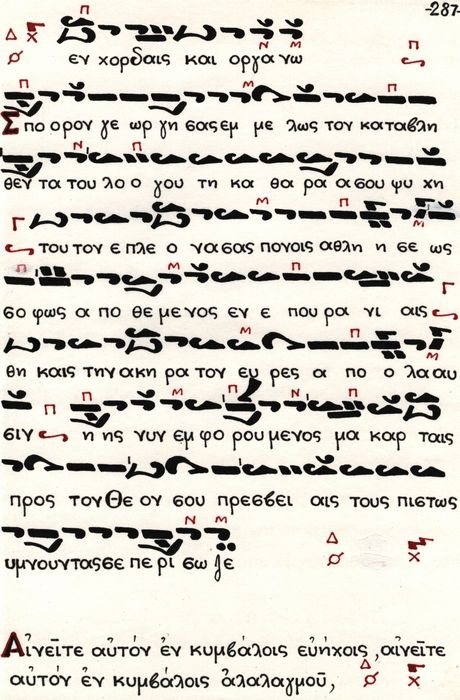 -287-
εν χορδαις και οργανω
Σπο ορον γε ωρ γη σας εμ με λως τον καταβλη
θεν τα του λο ο γου τη κα θα ρα α σου ψυ χη
του τον ε πλε ο να σας πονοις αθλη η σε ως
σο φως α πο θε με νος εν ε που ρα νι αις
θη καις την ακη ρα τον ευ ρες α πο ο λα αυ
σιν η ης νυν εμ φο ρου μενος μα καρ ταις
προς τον Θε ον σου πρεσβει αις τους πιστως
υμνουντας σε πε ρι σω ζε
Αἰνεῖτε αὐτόν ἐν κυμβάλοις εὐήχοις, αἰνεῖτε
αὐτόν ἐν κυμβάλοις ἀλαλαγμοῦ,